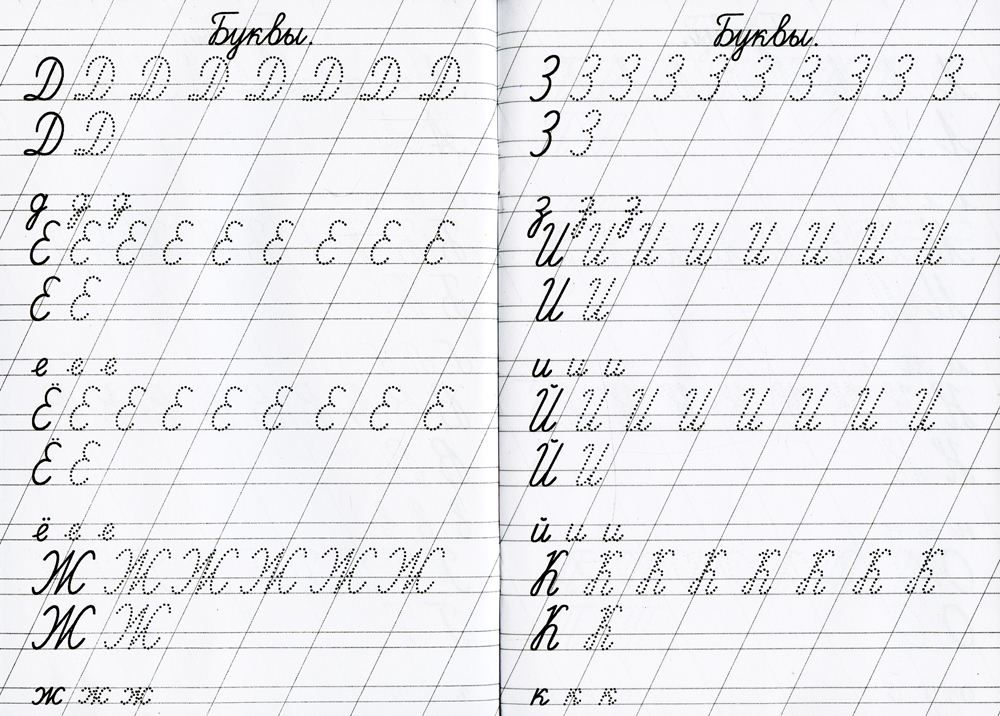 Буквы.
Д Д Д Д Д Д Д Д
Д Д
д д д
Е Е Е Е Е Е Е Е Е
Е Е
е е е
Ё Е Е Е Е Е Е Е Е
Ё Е
ё е е
Ж Ж Ж Ж Ж Ж
Ж Ж
ж ж ж
Буквы.
З З З З З З З З З З
З З
з з з
И И И И И И И И
И И
и и и
Й И И И И И И И
Й И
й и и
К К К К К К К К
К К
к к к